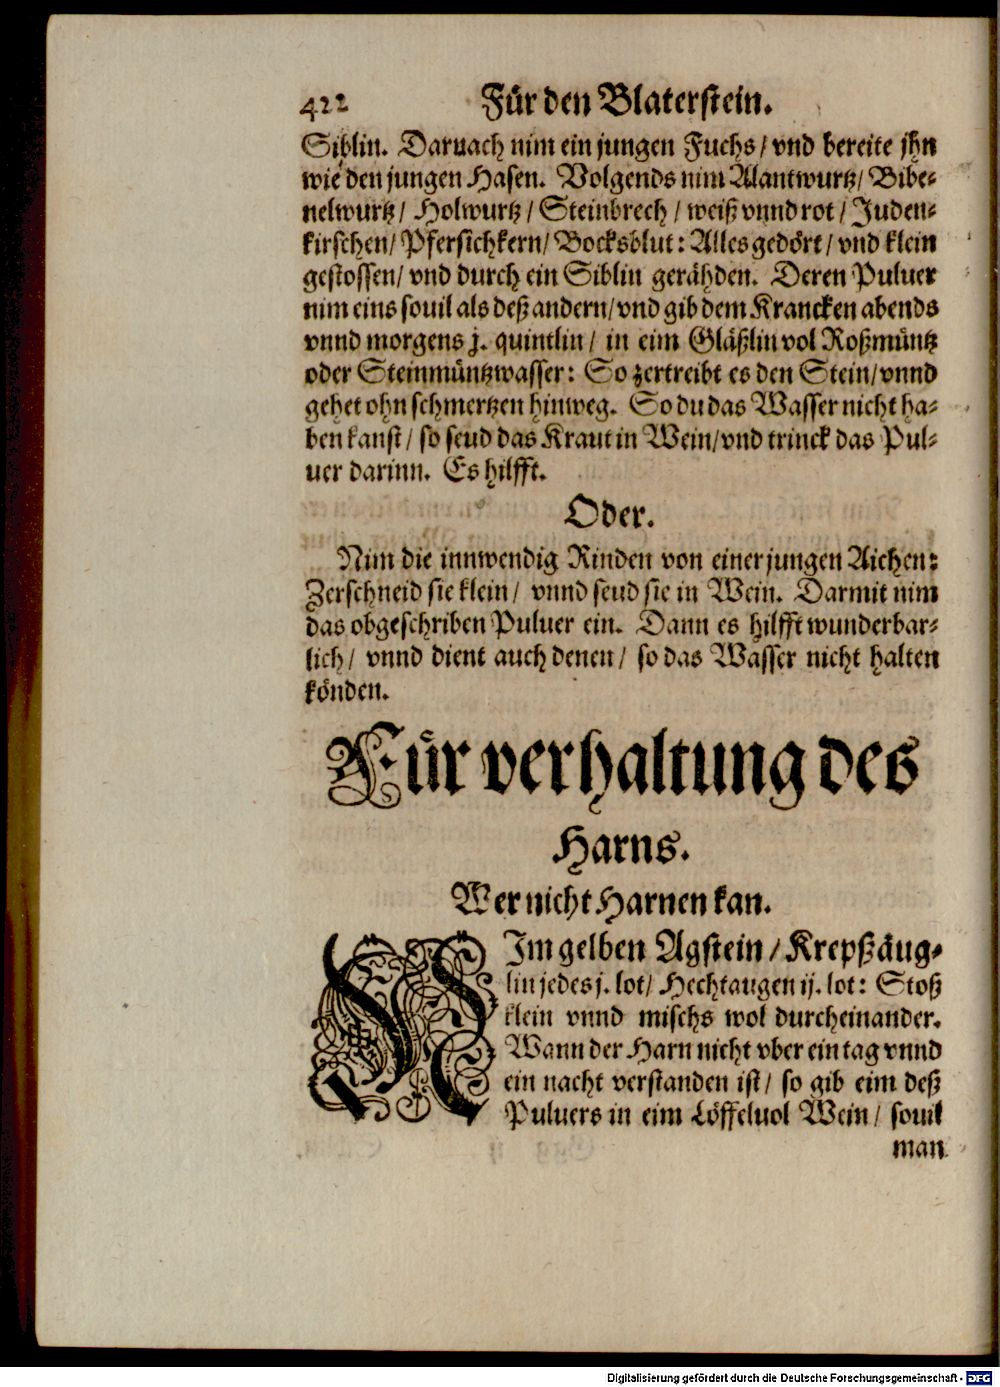 422 Für den Blaterstein.
Siblin. Darnach nim ein jungen Fuchs/ vnd bereite jhn
wie den jungen Hasen. Volgends nim Alantwurtz/ Bibe-
nelwurtz/ Holwurtz/ Steinbrech/ weiß vnnd rot/ Juden-
kirschen/ Pfersichkern/ Bocksblut: Alles gedört/ vnd klein
gestossen/ vnd durch ein Siblin gerähden. Deren Puluer
nim eins souil als deß andern/ vnd gib dem Krancken abends
vnnd morgens j. quintlin/ in eim Gläßlin vol Roßmüntz
oder Steinmüntzwasser: So zertreibt es den Stein/ vnnd
gehet ohn schmertzen hinweg. So du das Wasser nicht ha-
ben kanst/ so seud das Kraut in Wein/ vnd trinck das Pul-
uer darinn. Es hilfft.
Oder.
Nim die innwendig Rinden von einer jungen Aichen:
Zerschneid sie klein/ vnnd seud sie in Wein. Darmit nim
das obgeschriben Puluer ein. Dann es hilfft wunderbar-
lich/ vnnd dient auch denen/ so das Wasser nicht halten
könden.
Für verhaltung des
Harns.
Wer nicht Harnen kan.
NIm gelben Agstein/ Krepßäug-
lin jedes j. lot/ Hechtaugen ij. lot: Stoß
klein vnnd mischs wol durcheinander.
Wann der Harn nicht vber ein tag vnnd
ein nacht verstanden ist/ so gib eim deß
Puluers in eim Löffeluol Wein/ souil
man
Digitalisierung gefördert durch die Deutsche Forschungsgemeinschaft - DFG